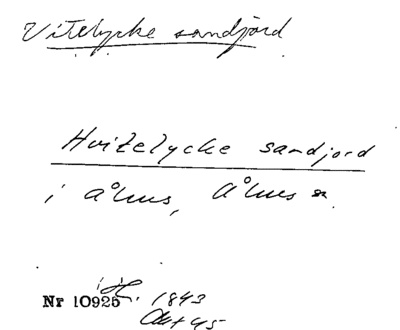 Vitelycke sandjord
Hvitelycke sandjord
i Åhus, Åhus sn.
Nr 10925 1843
Akt 45